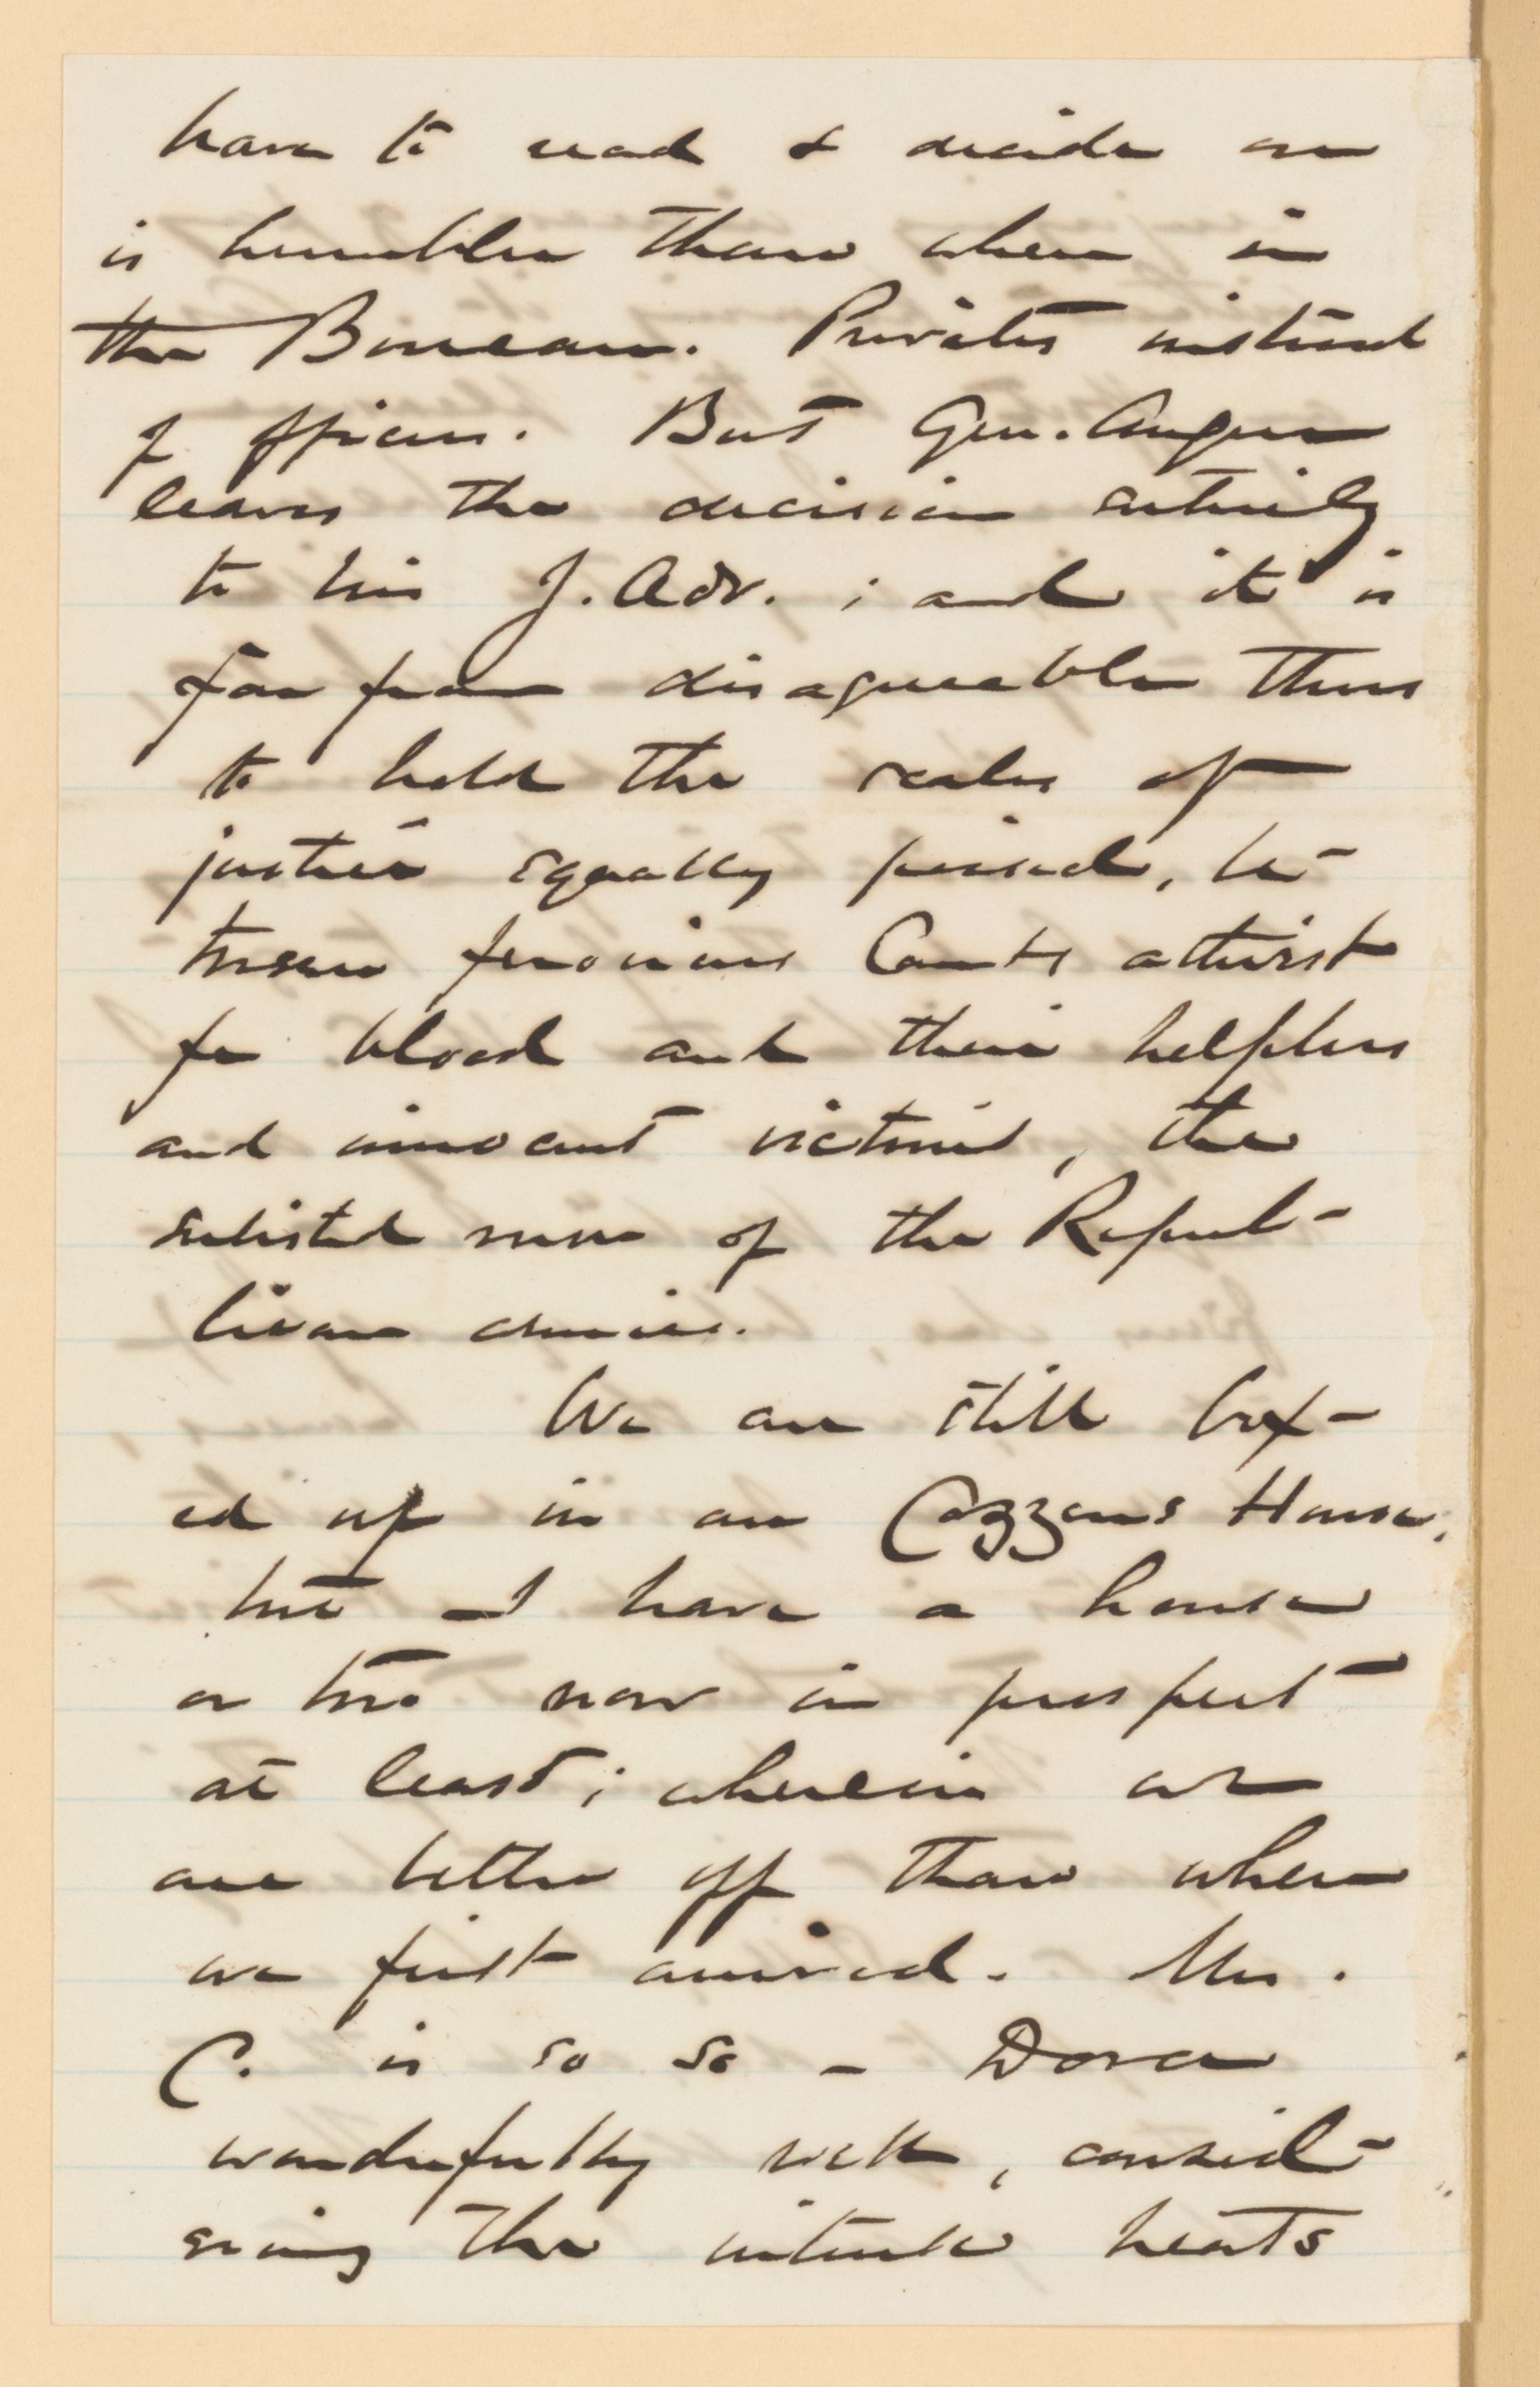 have to read & decide on
is humbler than when in
the Bureau. Privates instead
of officers. But Gen. Augur
leaves the decision entirely
to his J. Adv. ; and it is
far from disagreeable thus
to hold the scales of
justice equally poised, be-
tween ferocious Courts athirst
for blood and their helpless
and innocent victims, the
enlisted men of the Repub-
lican armies.
We are still box-
ed up in our Cozzens House,
but I have a house
or two now in prospect
at least ; wherein we
are better off than when
we first arrived. Mrs.
C. is so so - Dora
wonderfully well, consid-
ering the intense heats